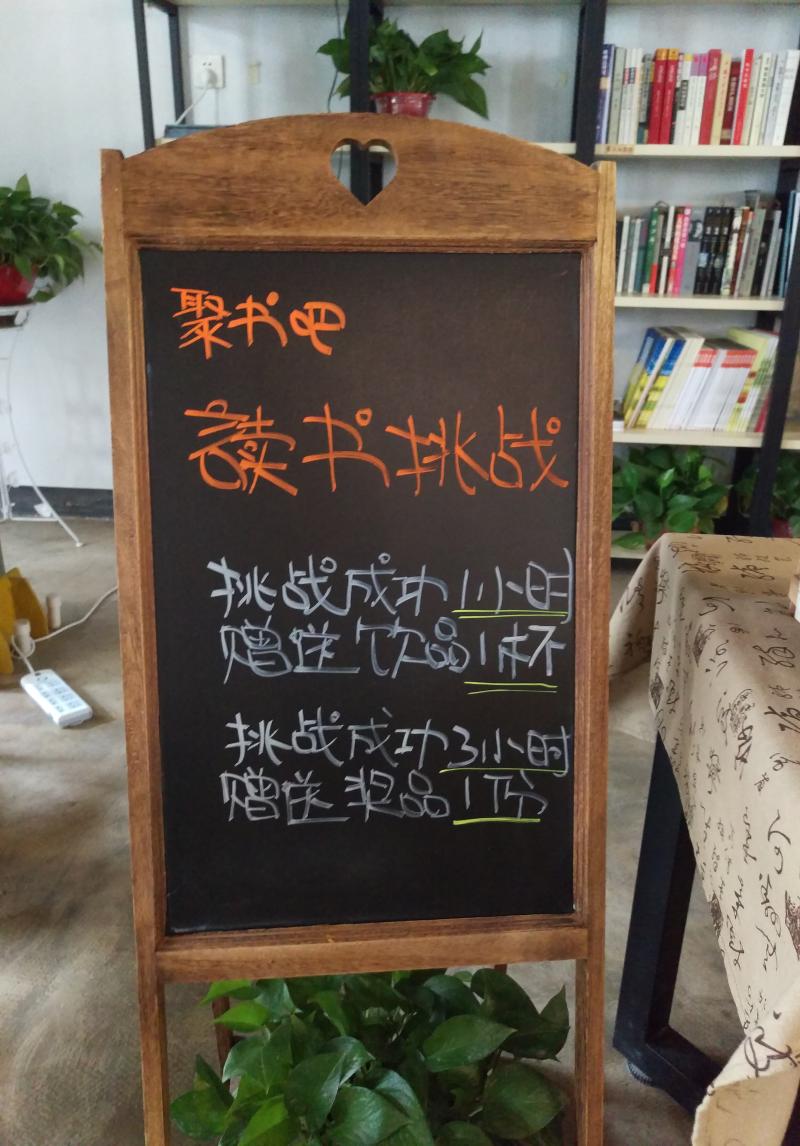 聚书吧
读书挑战
挑战成功1小时
赠送饮品1杯
挑战成功3小时
赠送奖品1份